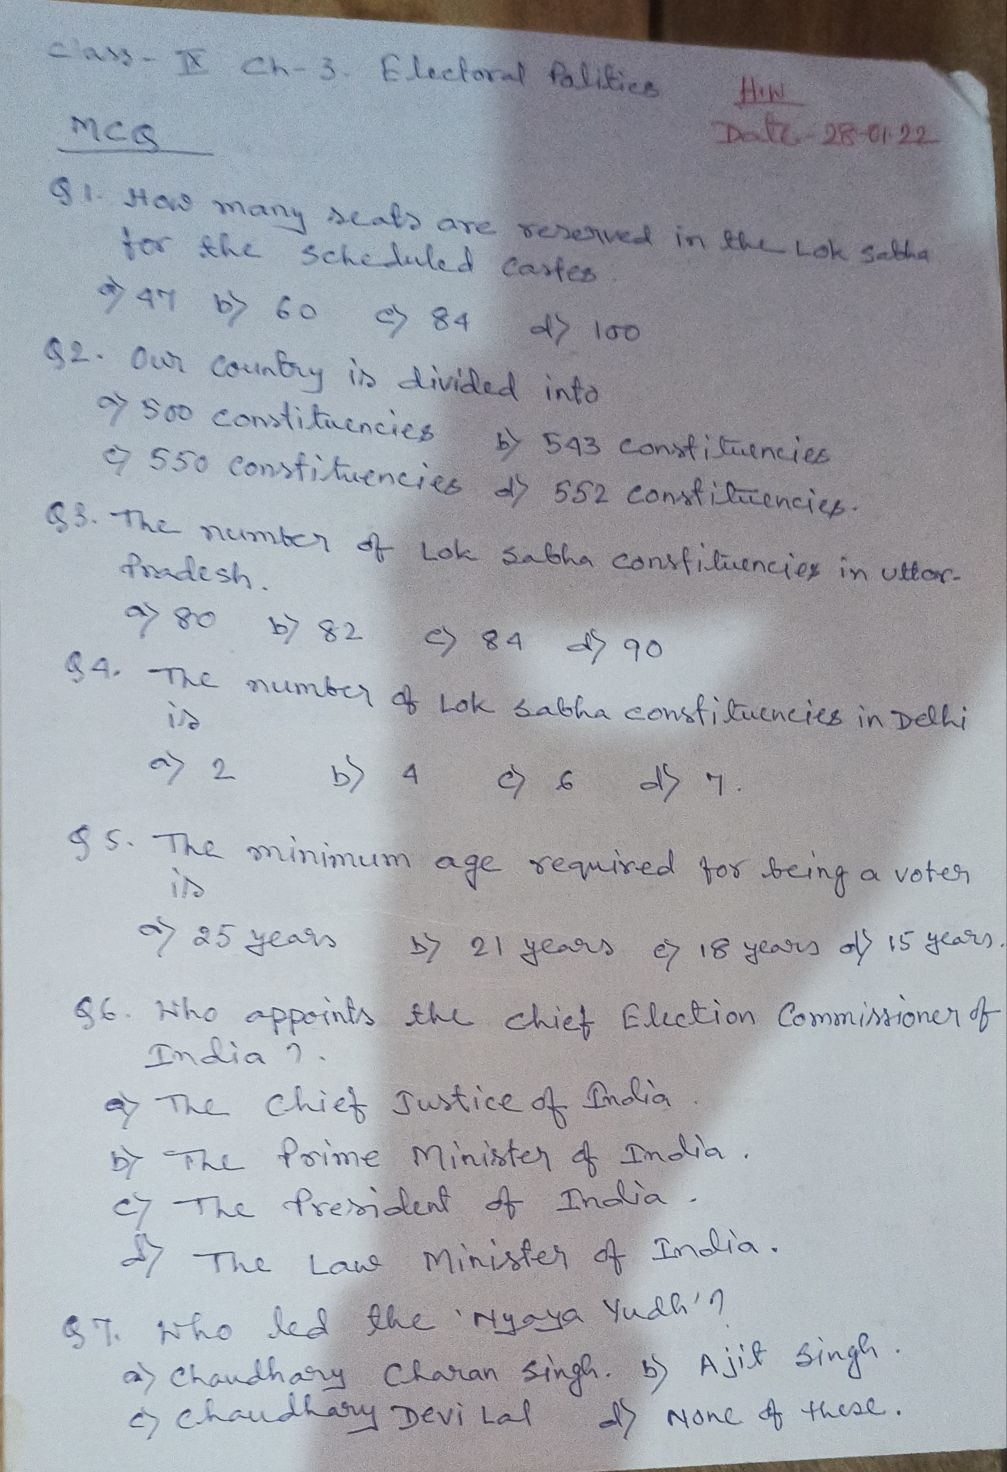 Class - IX Ch-3. Electoral Politics
H.W
Date - 28-01-22
MCQ
Q1. How many seats are reserved in the Lok Sabha
for the Scheduled Castes.
a) 47 b) 60 c) 84 d) 100
Q2. Our country is divided into
a) 500 constituencies b) 543 constituencies
c) 550 constituencies d) 552 constituencies.
Q3. The number of Lok Sabha constituencies in Uttar-
Pradesh.
a) 80 b) 82 c) 84 d) 90
Q4. The number of Lok Sabha constituencies in Delhi
is
a) 2 b) 4 c) 6 d) 7.
Q5. The minimum age required for being a voter
is
a) 25 years b) 21 years c) 18 years d) 15 years.
Q6. Who appoints the Chief Election Commissioner of
India ?.
a) The Chief Justice of India.
b) The Prime Minister of India.
c) The President of India.
d) The Law Minister of India.
Q7. Who led the 'Nyaya Yudh'?
a) Chaudhary Charan Singh. b) Ajit Singh.
c) Chaudhary Devi Lal d) None of these.